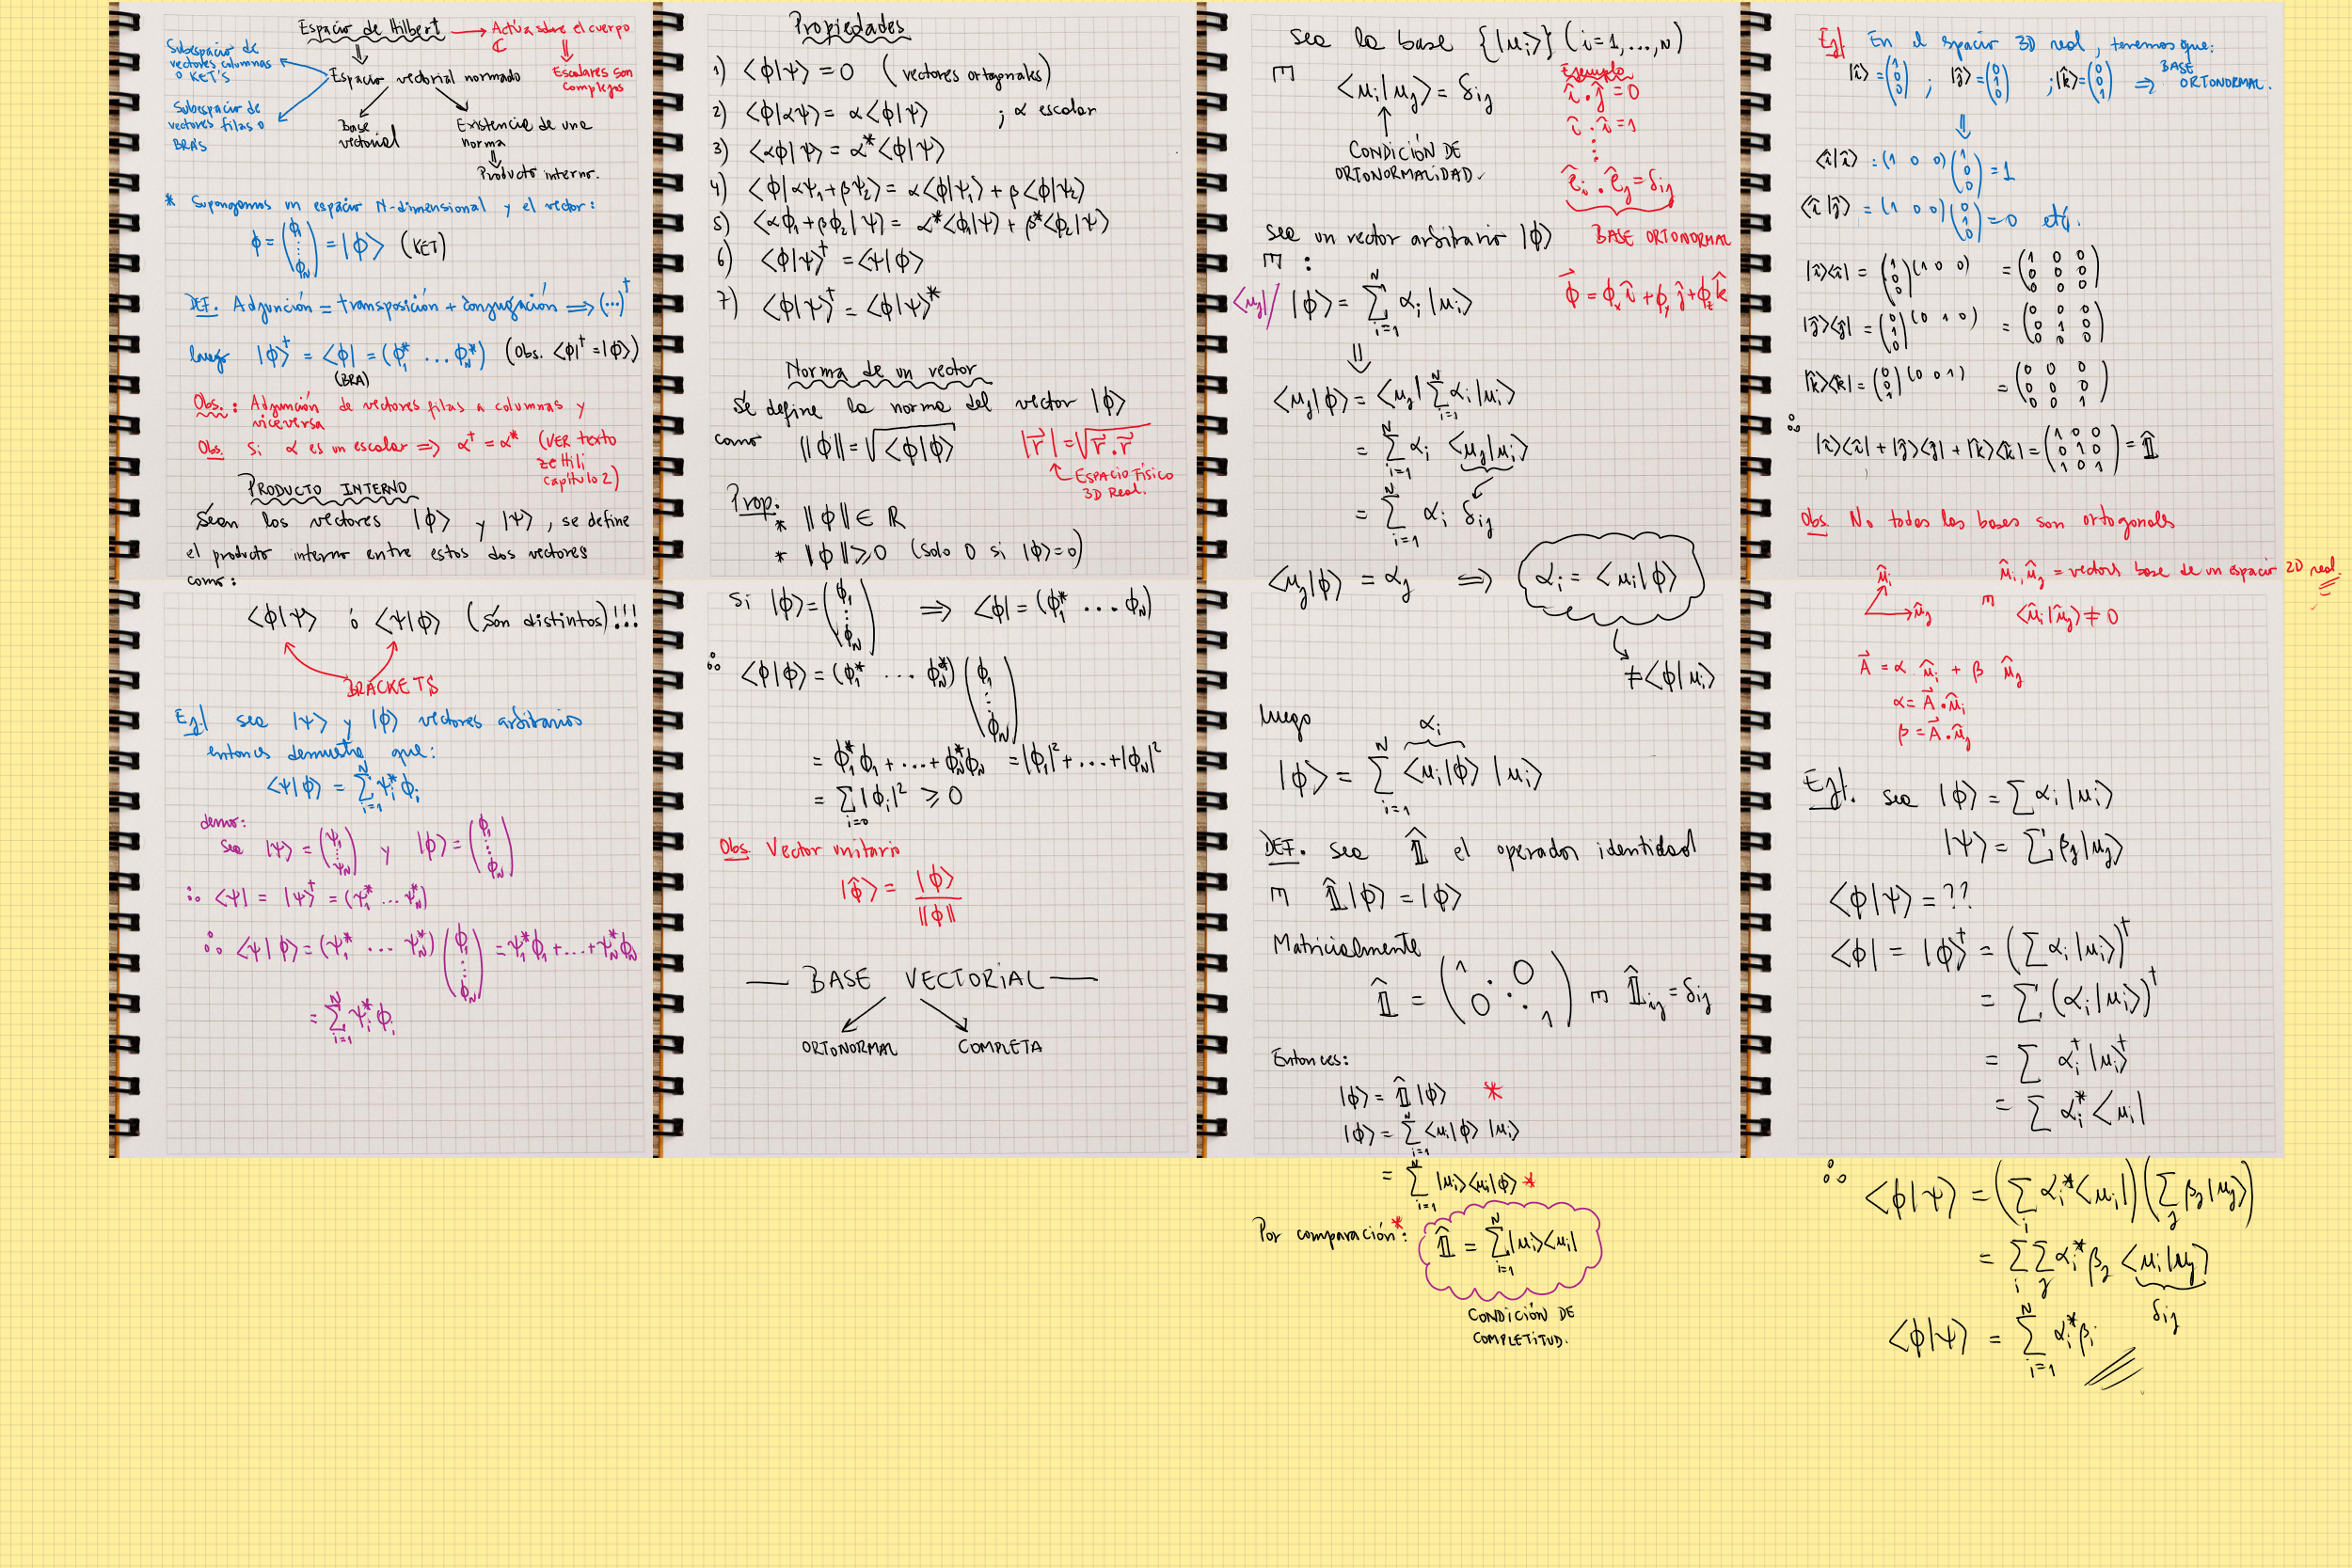 Espacio de Hilbert → Actúa sobre el cuerpo ℂ
⇓
Escalares son complejos
Subespacio de vectores columnas o KET'S
Espacio vectorial normado
Subespacio de vectores filas o BRAS
Base vectorial
Existencia de una norma
⇓
Producto interno.
* Supongamos un espacio N-dimensional y el vector:
ϕ = (ϕ₁ ⋮ ϕ_N) = |ϕ⟩ (KET)
DEF. Adjunción = transposición + conjugación ⟹ (...)†
luego |ϕ⟩† = ⟨ϕ| = (ϕ₁* ... ϕ_N*) (Obs. ⟨ϕ|† = |ϕ⟩)
(BRA)
Obs.: Adjunción de vectores filas a columnas y viceversa
Obs. Si α es un escalar ⟹ α† = α* (VER texto zettili capítulo 2)
PRODUCTO INTERNO
Sean los vectores |ϕ⟩ y |ψ⟩, se define
el producto interno entre estos dos vectores
como:
⟨ϕ|ψ⟩ ó ⟨ψ|ϕ⟩ (Són distintos)!!!
BRACKETS
Ej| sea |ψ⟩ y |ϕ⟩ vectores arbitrarios
entonces demuestre que:
⟨ψ|ϕ⟩ = ∑_{i=1}^N ψ_i* ϕ_i
demo:
sea |ψ⟩ = (ψ₁ ⋮ ψ_N) y |ϕ⟩ = (ϕ₁ ⋮ ϕ_N)
∴ ⟨ψ| = |ψ⟩† = (ψ₁* ... ψ_N*)
∴ ⟨ψ|ϕ⟩ = (ψ₁* ... ψ_N*) (ϕ₁ ⋮ ϕ_N) = ψ₁*ϕ₁ + ... + ψ_N*ϕ_N
= ∑_{i=1}^N ψ_i* ϕ_i
Propiedades
1) ⟨ϕ|ψ⟩ = 0 (vectores ortogonales)
2) ⟨ϕ|αψ⟩ = α⟨ϕ|ψ⟩ ; α escalar
3) ⟨αϕ|ψ⟩ = α*⟨ϕ|ψ⟩
4) ⟨ϕ|αψ₁+βψ₂⟩ = α⟨ϕ|ψ₁⟩ + β⟨ϕ|ψ₂⟩
5) ⟨αϕ₁+βϕ₂|ψ⟩ = α*⟨ϕ₁|ψ⟩ + β*⟨ϕ₂|ψ⟩
6) ⟨ϕ|ψ⟩† = ⟨ψ|ϕ⟩
7) ⟨ϕ|ψ⟩† = ⟨ϕ|ψ⟩*
Norma de un vector
Se define la norma del vector |ϕ⟩
como ‖ϕ‖ = √⟨ϕ|ϕ⟩ |r⃗| = √(r⃗.r⃗)
ESPACIO FÍSICO 3D Real.
Prop.
* ‖ϕ‖ ∈ ℝ
* ‖ϕ‖ ⩾ 0 (Solo 0 si |ϕ⟩=0)
Si |ϕ⟩ = (ϕ₁ ⋮ ϕ_N) ⟹ ⟨ϕ| = (ϕ₁* ... ϕ_N)
∴ ⟨ϕ|ϕ⟩ = (ϕ₁* ... ϕ_N*) (ϕ₁ ⋮ ϕ_N)
= ϕ₁*ϕ₁ + ... + ϕ_N*ϕ_N = |ϕ₁|² + ... + |ϕ_N|²
= ∑_{i=0} |ϕ_i|² ⩾ 0
Obs. Vector unitario
|ϕ̂⟩ = |ϕ⟩ / ‖ϕ‖
— BASE VECTORIAL —
ORTONORMAL COMPLETA
sea la base {|μ_i⟩} (i=1,...,N)
∃ ⟨μ_i|μ_j⟩ = δ_ij
CONDICIÓN DE ORTONORMALIDAD.
Ejemplo
î.ĵ = 0
î.î = 1
⋮
ê_i.ê_j = δ_ij
BASE ORTONORMAL
sea un vector arbitrario |ϕ⟩
∃:
⟨μ_j|/ |ϕ⟩ = ∑_{i=1}^N α_i |μ_i⟩ ϕ⃗ = ϕ_x î + ϕ_y ĵ + ϕ_z k̂
⇓
⟨μ_j|ϕ⟩ = ⟨μ_j| ∑_{i=1}^N α_i |μ_i⟩
= ∑_{i=1}^N α_i ⟨μ_j|μ_i⟩
= ∑_{i=1}^N α_i δ_ij
⟨μ_j|ϕ⟩ = α_j ⟹ α_i = ⟨μ_i|ϕ⟩
≠ ⟨ϕ|μ_i⟩
luego
α_i
|ϕ⟩ = ∑_{i=1}^N ⟨μ_i|ϕ⟩ |μ_i⟩
DEF. sea 𝟙̂ el operador identidad
∃ 𝟙̂|ϕ⟩ = |ϕ⟩
Matricialmente
𝟙̂ = (1 ⋱ 0 0 ⋱ 1) ∃ 𝟙̂_ij = δ_ij
Entonces:
|ϕ⟩ = 𝟙̂|ϕ⟩ *
|ϕ⟩ = ∑_{i=1}^N ⟨μ_i|ϕ⟩ |μ_i⟩
= ∑_{i=1}^N |μ_i⟩⟨μ_i|ϕ⟩ *
Por comparación*: 𝟙̂ = ∑_{i=1}^N |μ_i⟩⟨μ_i|
CONDICIÓN DE
COMPLETITUD.
Ej| En el espacio 3D real, tenemos que:
|î⟩ = (1 0 0) ; |ĵ⟩ = (0 1 0) ; |k̂⟩ = (0 0 1) ⟹ BASE ORTONORMAL.
⇓
⟨î|î⟩ = (1 0 0)(1 0 0) = 1
⟨î|ĵ⟩ = (1 0 0)(0 1 0) = 0 etc.
|î⟩⟨î| = (1 0 0)(1 0 0) = (1 0 0 0 0 0 0 0 0)
|ĵ⟩⟨ĵ| = (0 1 0)(0 1 0) = (0 0 0 0 1 0 0 0 0)
|k̂⟩⟨k̂| = (0 0 1)(0 0 1) = (0 0 0 0 0 0 0 0 1)
∴
|î⟩⟨î| + |ĵ⟩⟨ĵ| + |k̂⟩⟨k̂| = (1 0 0 0 1 0 1 0 1) = 𝟙̂
Obs. No todas las bases son ortogonales
μ̂_i μ̂_j
μ̂_i, μ̂_j = vectores base de un espacio 2D real.
∃ ⟨μ̂_i|μ̂_j⟩ ≠ 0
A⃗ = α μ̂_i + β μ̂_j
α = A⃗.μ̂_i
β = A⃗.μ̂_j
Ej|. sea |ϕ⟩ = ∑ α_i |μ_i⟩
|ψ⟩ = ∑ β_j |μ_j⟩
⟨ϕ|ψ⟩ = ??
⟨ϕ| = |ϕ⟩† = (∑ α_i |μ_i⟩)†
= ∑ (α_i |μ_i⟩)†
= ∑ α_i† |μ_i⟩†
= ∑ α_i* ⟨μ_i|
∴ ⟨ϕ|ψ⟩ = (∑_i α_i* ⟨μ_i|)(∑_j β_j |μ_j⟩)
= ∑_i ∑_j α_i* β_j ⟨μ_i|μ_j⟩
δ_ij
⟨ϕ|ψ⟩ = ∑_{i=1}^N α_i* β_i